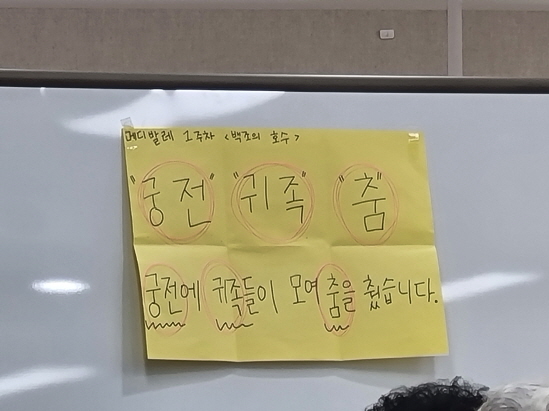 메디발레 1주차 <백조의 호수>
"궁전" "귀족" "춤"
궁전에 귀족들이 모여 춤을 췄습니다.